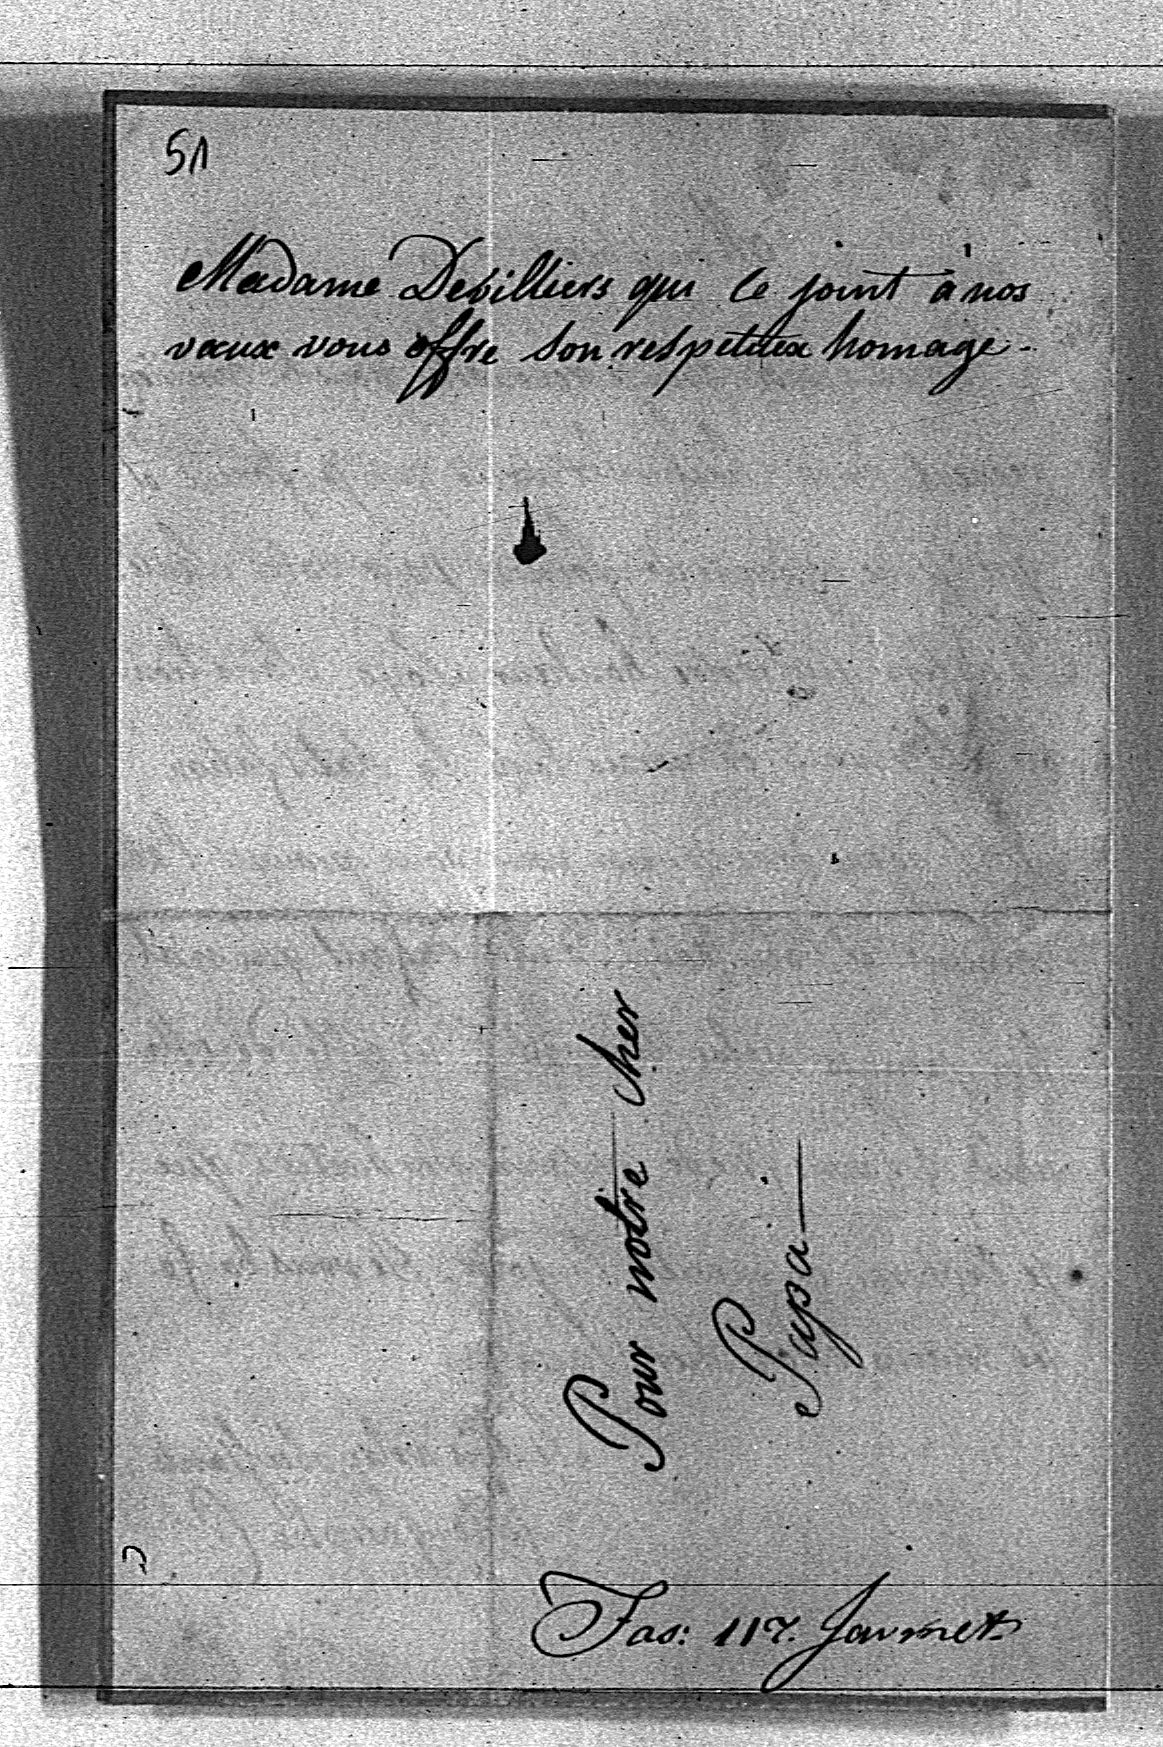 51
Madame Devilliers qui ce joint à nos
vœux vous offre son respetuex homage.
Pour notre cher
Papa
Fas: 117.